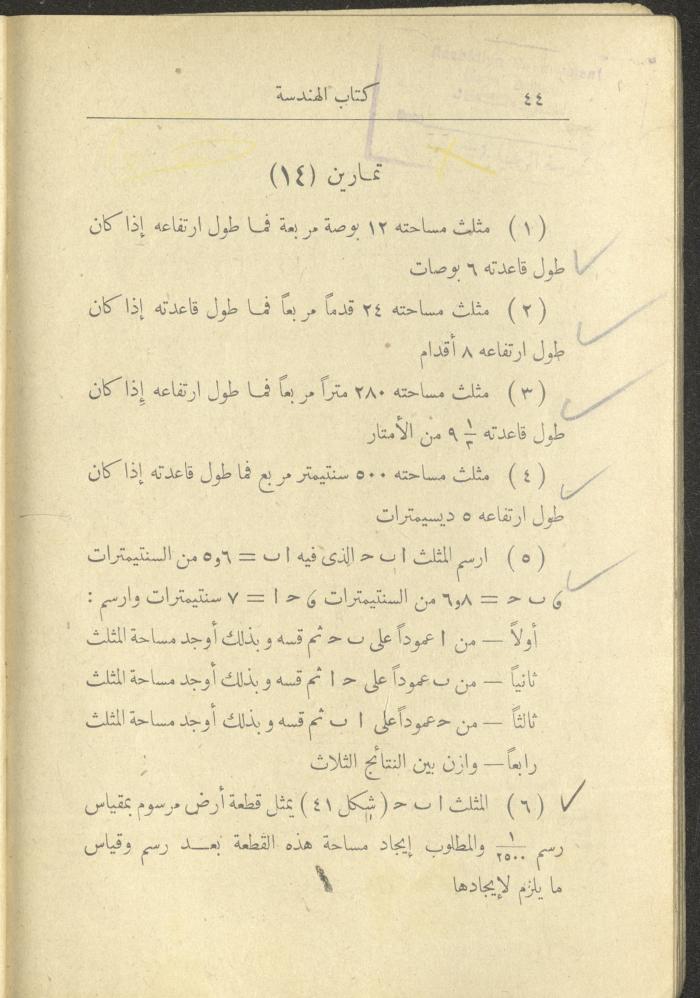 ٤٤ كتاب الهندسة
تمارين (١٤)
(١) مثلث مساحته ١٢ بوصة مربعة فما طول ارتفاعه إذا كان
طول قاعدته ٦ بوصات
(٢) مثلث مساحته ٢٤ قدماً مربعاً فما طول قاعدته إذا كان
طول ارتفاعه ٨ أقدام
(٣) مثلث مساحته ٢٨٠ متراً مربعاً فما طول ارتفاعه إذا كان
طول قاعدته ٩ ١/٣ من الأمتار
(٤) مثلث مساحته ٥٠٠ سنتيمتر مربع فما طول قاعدته إذا كان
طول ارتفاعه ٥ ديسيمترات
(٥) ارسم المثلث ا ب ح الذى فيه ا ب = ٦و٥ من السنتيمترات
و ب ح = ٨و٦ من السنتيمترات و ح ا = ٧ سنتيمترات وارسم :
أولاً — من ا عموداً على ب ح ثم قسه وبذلك أوجد مساحة المثلث
ثانياً — من ب عموداً على ح ا ثم قسه وبذلك أوجد مساحة المثلث
ثالثاً — من ح عموداً على ا ب ثم قسه وبذلك أوجد مساحة المثلث
رابعاً — وازن بين النتائج الثلاث
(٦) المثلث ا ب ح (شكل ٤١) يمثل قطعة أرض مرسوم بمقياس
رسم ١/٢٥٠٠ والمطلوب إيجاد مساحة هذه القطعة بعد رسم وقياس
ما يلزم لإيجادها